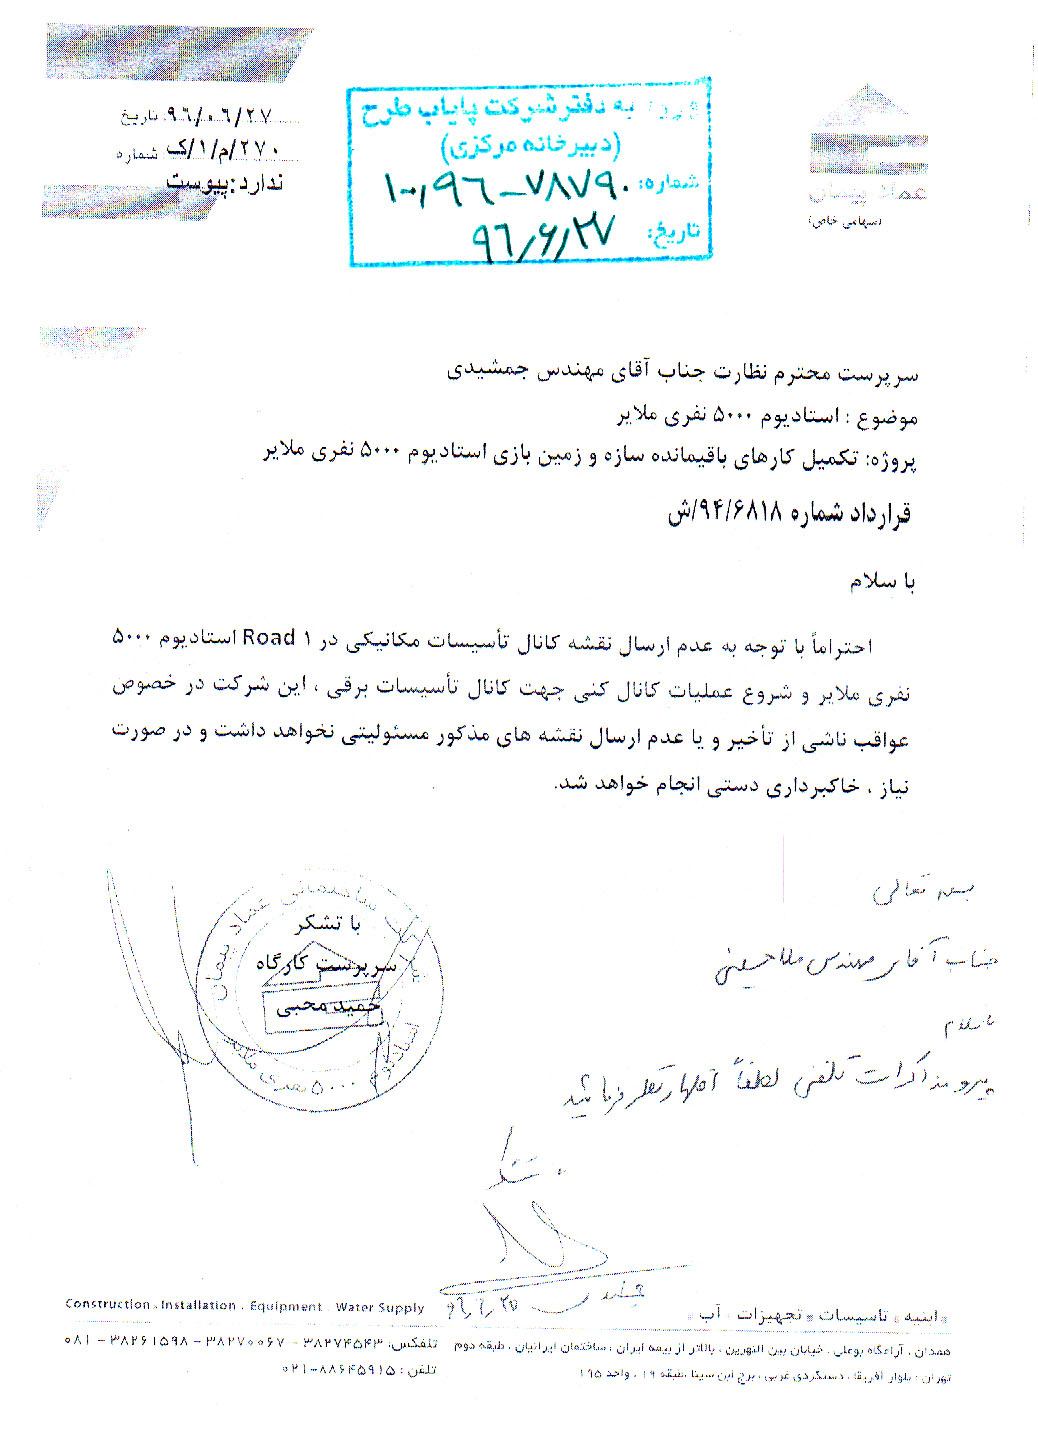 تاریخ ۹۶/۰۶/۲۷
شماره ۲۷۰/م/۱/ک
ندارد:پیوست
ورود به دفتر شرکت پایاب طرح
(دبیرخانه مرکزی)
شماره: ۱۰,۹۶-۷۸۷۹۰
تاریخ: ۹۶/۶/۲۷
عماد پیمان
(سهامی خاص)
سرپرست محترم نظارت جناب آقای مهندس جمشیدی
موضوع : استادیوم ۵۰۰۰ نفری ملایر
پروژه: تکمیل کارهای باقیمانده سازه و زمین بازی استادیوم ۵۰۰۰ نفری ملایر
قرارداد شماره ۹۴/۶۸۱۸/ش
با سلام
احتراماً با توجه به عدم ارسال نقشه کانال تأسیسات مکانیکی در Road ۱ استادیوم ۵۰۰۰
نفری ملایر و شروع عملیات کانال کنی جهت کانال تأسیسات برقی ، این شرکت در خصوص
عواقب ناشی از تأخیر و یا عدم ارسال نقشه های مذکور مسئولیتی نخواهد داشت و در صورت
نیاز ، خاکبرداری دستی انجام خواهد شد.
با تشکر
سرپرست کارگاه
حمید محبی
استادیوم ۵۰۰۰ نفری ملایر
بسمه تعالی
جناب آقای مهندس ملاحسینی
با سلام
پیرو مذاکرات تلفنی لطفاً اظهار نظر فرمائید
۹۶/۶/۲۷
Construction . Installation . Equipment . Water Supply
ابنیه تاسیسات تجهیزات آب
همدان ، آرامگاه بوعلی ، خیابان بین النهرین ، بالاتر از بیمه ایران ، ساختمان ایرانیان ، طبقه دوم تلفکس: ۳۸۲۷۴۵۴۳ – ۳۸۲۷۰۰۶۷ – ۳۸۲۶۱۵۹۸ – ۰۸۱
تهران : بلوار آفریقا ، دستگردی غربی ، برج ابن سینا ،طبقه ۱۹ ، واحد ۱۹۵ تلفن : ۸۸۶۴۵۹۱۵-۰۲۱